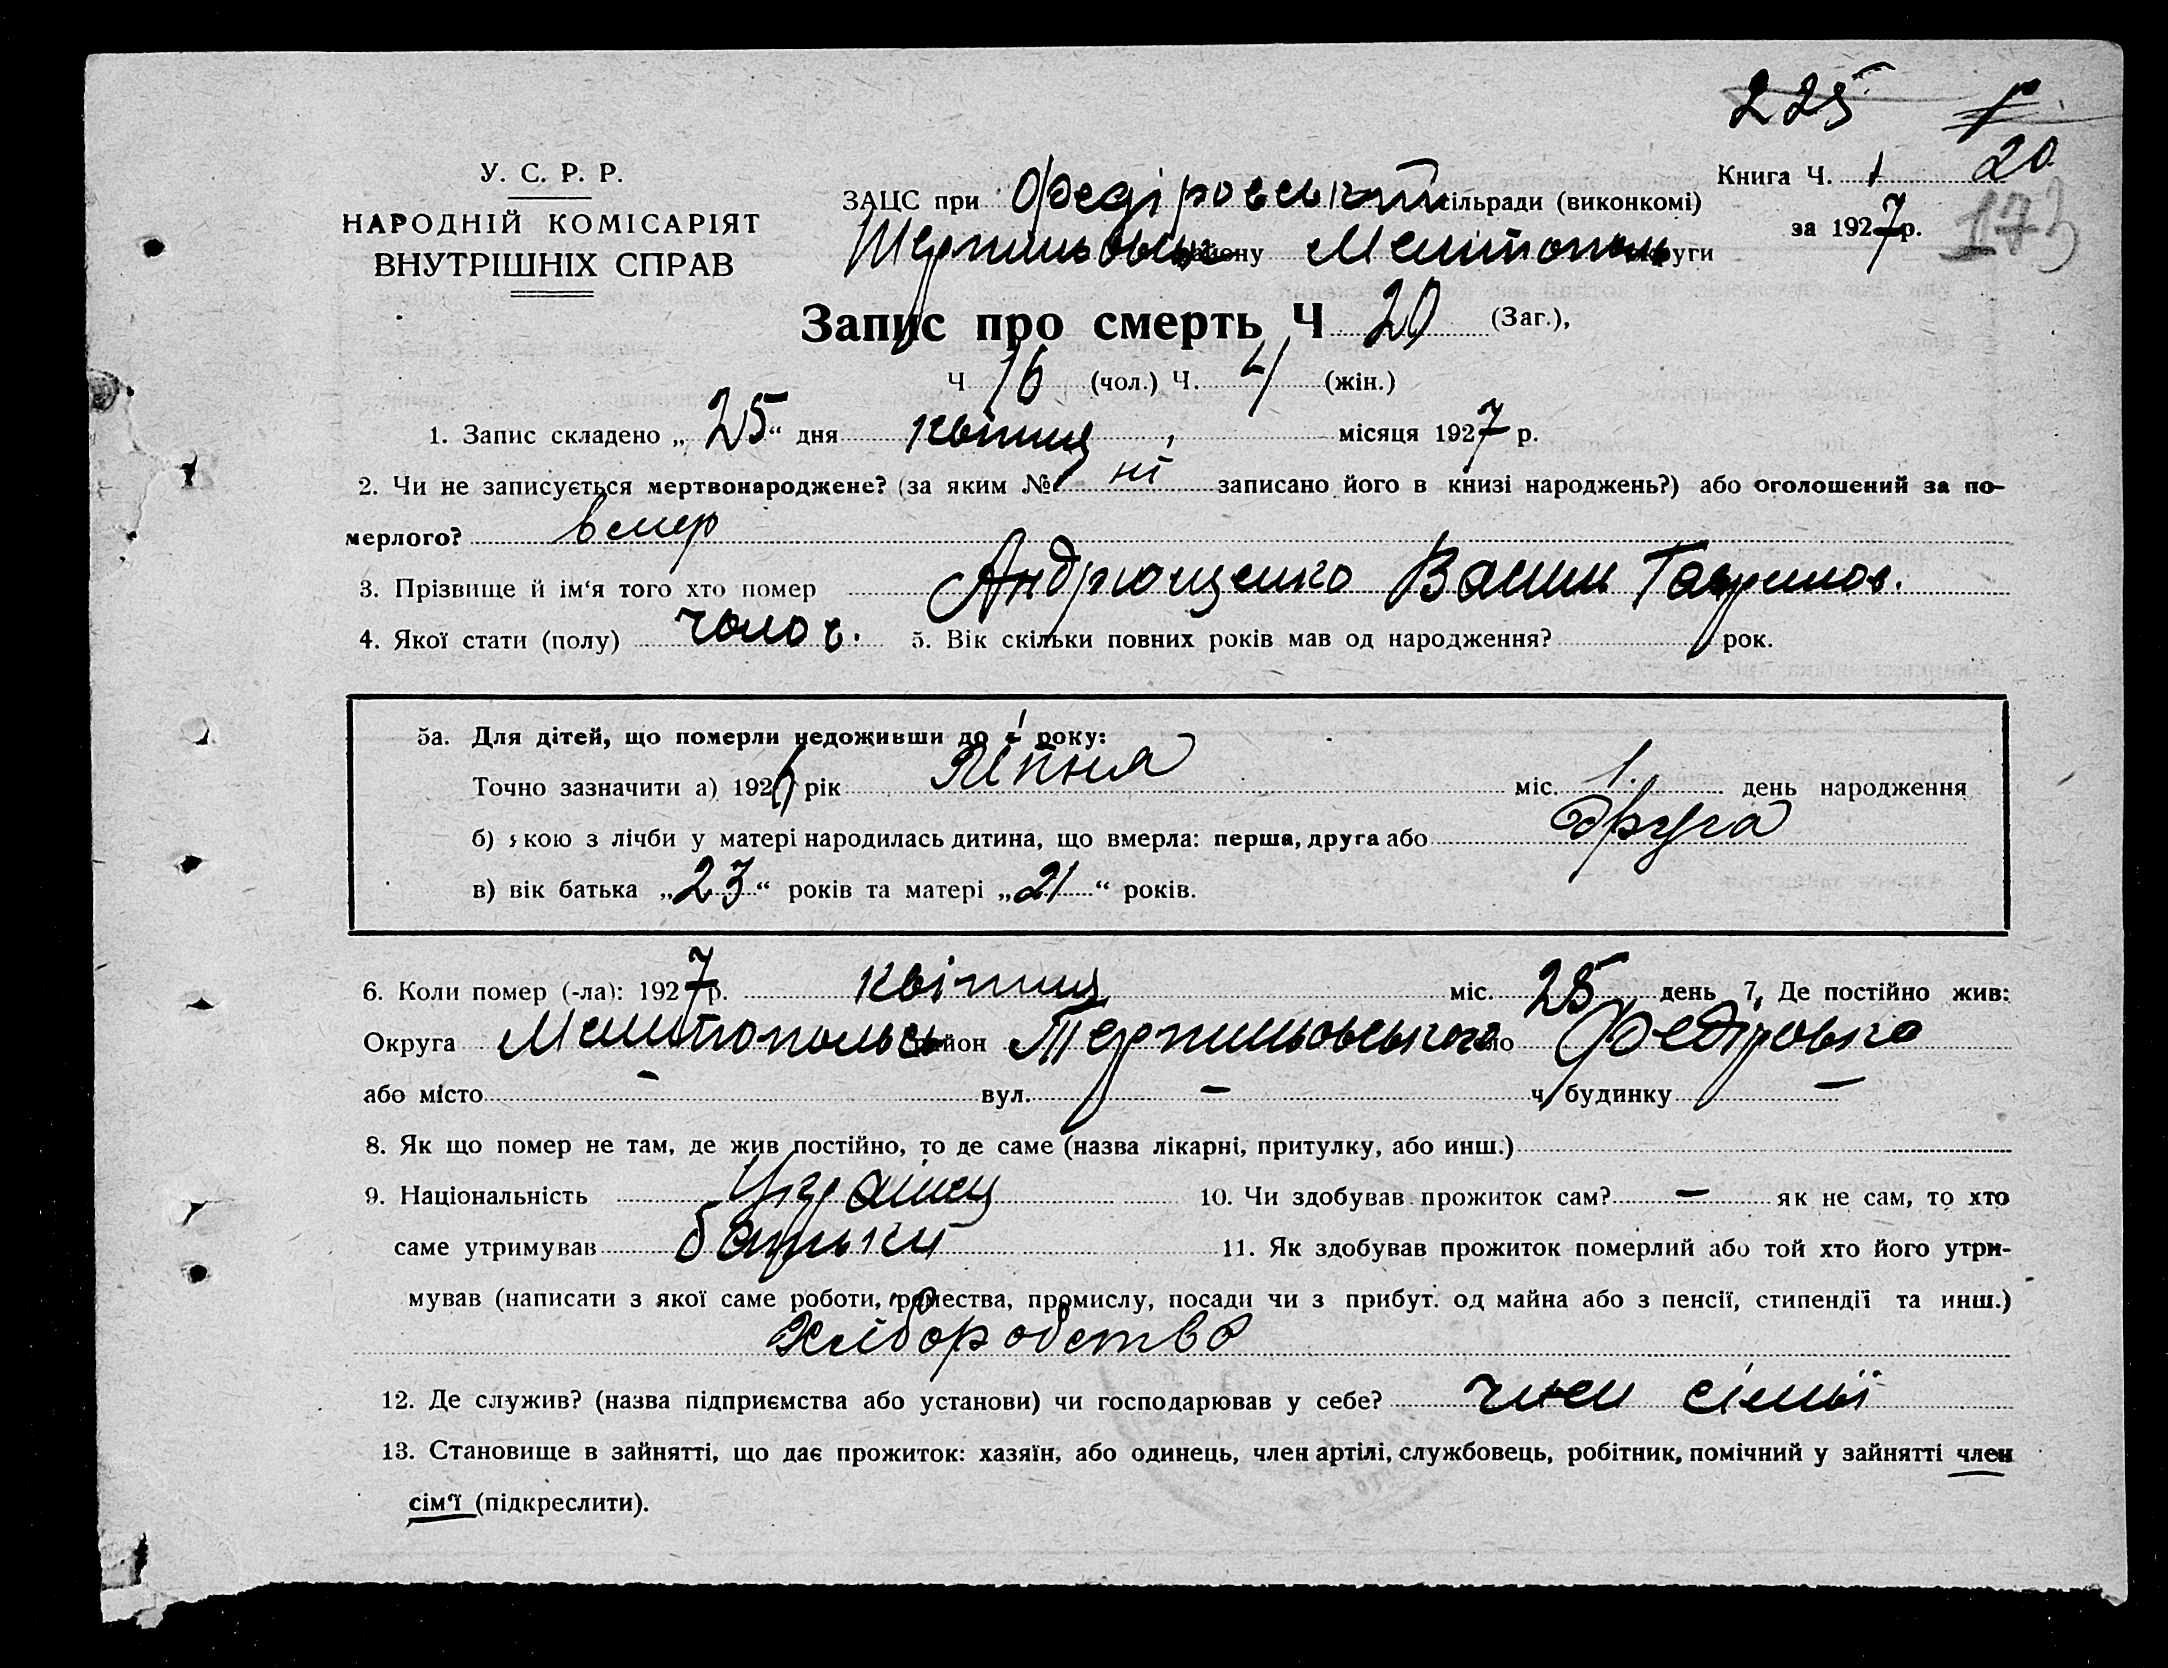 225
20
173
У. С. Р. Р.
НАРОДНІЙ КОМІСАРІЯТ
ВНУТРІШНІХ СПРАВ
Книга Ч. 1
за 1927 р.
ЗАЦС при Федіровський сільради (виконкомі)
району Мелітополь округи
Запис про смерть Ч 20 (Заг.),
Ч 16 (чол.) Ч. 4 (жін.)
1. Запис складено „ 25 “ дня квітня місяця 1927 р.
2. Чи не записується мертвонароджене? (за яким № ні записано його в книзі народжень?) або оголошений за по-
мерлого? вмер
3. Прізвище й ім‘я того хто помер Андрющенко Гаврилов.
4. Якої стати (полу) чолов. 5. Вік скільки повних років мав од народження? рок.
5а. Для дітей, що померли недоживши до 1 року:
Точно зазначити а) 1926 рік міс. 1. день народження
б) якою з лічби у матері народилась дитина, що вмерла: перша, друга або друга
в) вік батька „23“ років та матері „21“ років.
6. Коли помер (-ла): 1927 р. квітня міс. 25 день 7. Де постійно жив:
Округа Мелітопольсь район Терпиньовського село Федіровка
або місто – вул. – ч. будинку –
8. Як що помер не там, де жив постійно, то де саме (назва лікарні, притулку, або инш.)
9. Національність Україней 10. Чи здобував прожиток сам? – як не сам, то хто
саме утримував батьки 11. Як здобував прожиток померлий або той хто його утри-
мував (написати з якої саме роботи, ремества, промислу, посади чи з прибут. од майна або з пенсії, стипендії та инш.)
Хліборобство
12. Де служив? (назва підприємства або установи) чи господарював у себе? член сімьї
13. Становище в зайнятті, що дає прожиток: хазяїн, або одинець, член артілі, службовець, робітник, помічний у зайнятті член
сім‘ї (підкреслити).